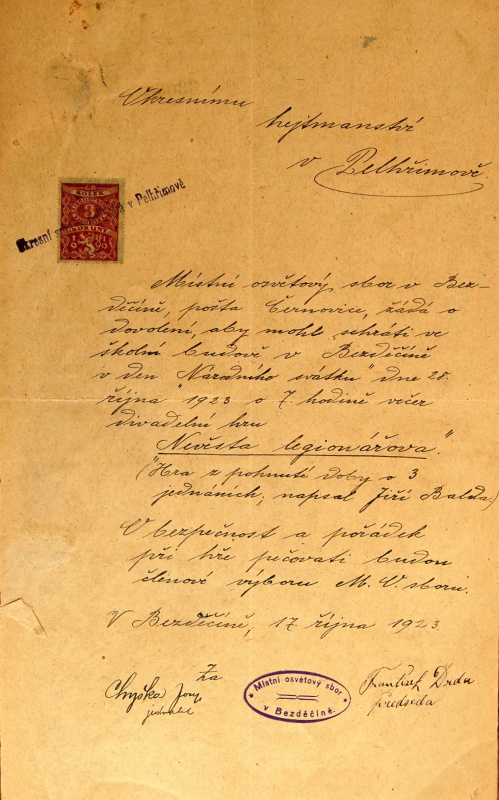 Okresnímu
hejtmanství
v Pelhřimově.
Č.S.
KOLEK
3
KORUNY
Okresní v Pelhřimově
Místní osvětový sbor v Bez-
děčíně, pošta Černovice, žádá o
dovolení, aby mohl sehráti ve
školní budově v Bezděčíně
v den „Národního svátku" dne 28.
října 1923 o 7. hodině večer
divadelní hru
„Nevěsta legionářova."
(Hra z pohnuté doby o 3
jednáních, napsal Jiří Balda.)
O bezpečnost a pořádek
při hře pečovati budou
členové výboru M. O. sboru.
V Bezděčíně, 17. října 1923.
Za
Chyška Josef
jednatel
Místní osvětový sbor
v Bezděčíně.
František Drda
předseda